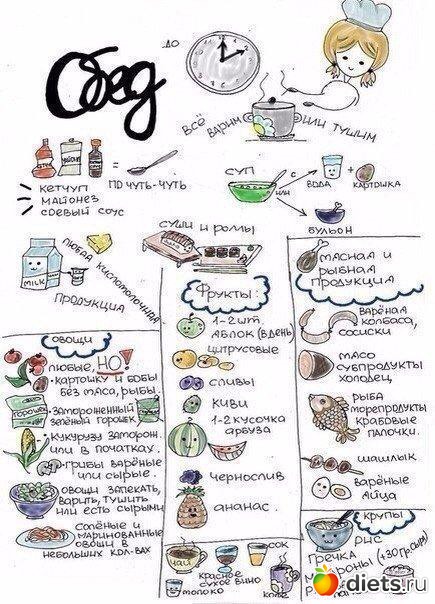 Обед
до
всё варим или тушим
кетчуп
майонез
соевый соус
= по чуть-чуть
суп
с
вода
+
картошка
или
бульон
суши и роллы
MILK
любая кисломолочная
продукция
овощи
любые, НО!
• картошку и бобы
без мяса, рыбы.
горошек
• замороженный
зелёный горошек
• кукурузу заморон.
или в початках.
• грибы варёные
или сырые.
овощи запекать,
варить, тушить
или есть сырыми
солёные и
маринованные
овощи в
небольших кол-вах
Фрукты:
1-2 шт.
яблок (в день)
цитрусовые
сливы
киви
1-2 кусочка
арбуза
чернослив
ананас.
чай
красное
сухое вино
сок
молоко
кофе
мясная и
рыбная
продукция
варёная
колбаса,
сосиски
мясо
субпродукты
холодец
рыба
морепродукты
крабовые
палочки.
шашлык
варёные
яйца
крупы
рис
гречка
(+30 гр. сыра)
diets.ru